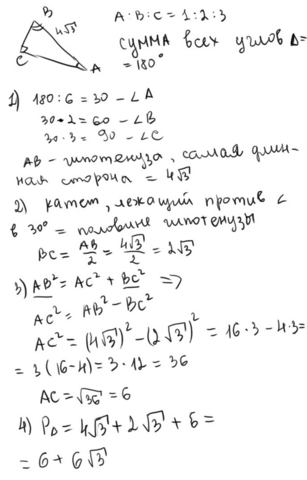 B
4√3
C
A
A:B:C = 1:2:3
сумма всех углов Δ=
= 180°
1) 180:6 = 30 - ∠A
30·2 = 60 - ∠B
30·3 = 90 - ∠C
AB - гипотенуза, самая длин-
ная сторона = 4√3
2) катет, лежащий против ∠
в 30° = половине гипотенузы
BC = AB/2 = 4√3/2 = 2√3
3) AB² = AC² + BC² =>
AC² = AB² - BC²
AC² = (4√3)² - (2√3)² = 16·3 - 4·3 =
= 3(16-4) = 3·12 = 36
AC = √36 = 6
4) PΔ = 4√3 + 2√3 + 6 =
= 6 + 6√3